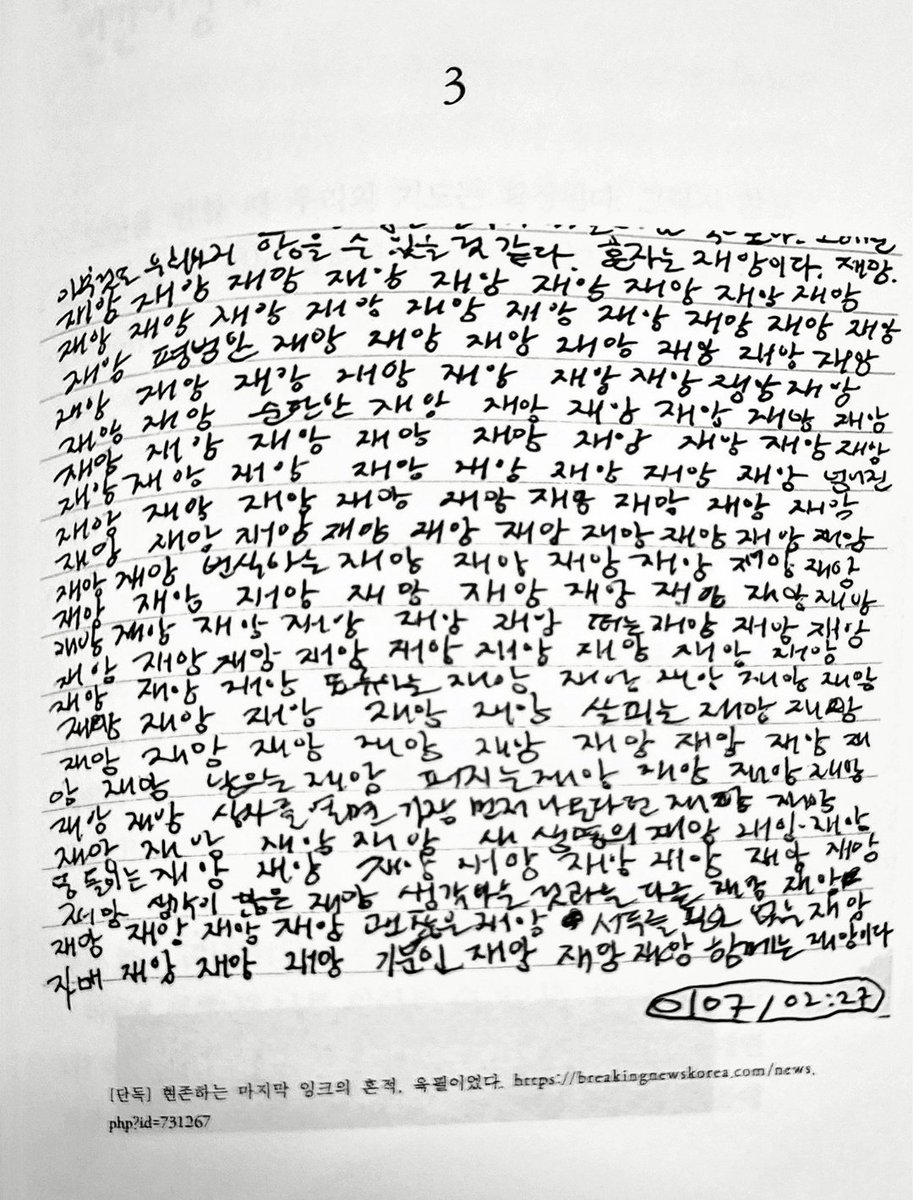 3
한을 수 있을 것 같다. 혼자는 재앙이다. 재앙.
재앙 재앙 재앙 재앙 재앙 재앙 재앙 재앙 재앙
재앙 재앙 재앙 재앙 재앙 재앙 재앙 재앙 재앙 재앙
재앙 평범한 재앙 재앙 재앙 재앙 재앙 재앙 재앙
재앙 재앙 재앙 재앙 재앙 재앙 재앙 재앙 재앙
재앙 재앙 순탄한 재앙 재앙 재앙 재앙 재앙 재앙
재앙 재앙 재앙 재앙 재앙 재앙 재앙 재앙 재앙
재앙 재앙 재앙 재앙 재앙 재앙 재앙 재앙 넘어진
재앙 재앙 재앙 재앙 재앙 재앙 재앙 재앙 재앙
재앙 재앙 재앙 재앙 재앙 재앙 재앙 재앙 재앙 재앙
재앙 재앙 번식하는 재앙 재앙 재앙 재앙 재앙 재앙
재앙 재앙 재앙 재앙 재앙 재앙 재앙 재앙 재앙
재앙 재앙 재앙 재앙 재앙 재앙 떠는 재앙 재앙 재앙
재앙 재앙 재앙 재앙 재앙 재앙 재앙 재앙 재앙
재앙 재앙 재앙 표류하는 재앙 재앙 재앙 재앙 재앙
재앙 재앙 재앙 재앙 재앙 살피는 재앙 재앙
재앙 재앙 재앙 재앙 재앙 재앙 재앙 재앙 재
앙 재앙 나우는 재앙 퍼지는 재앙 재앙 재앙 재앙
재앙 재앙 상자를 열면 가장 먼저 나온다던 재앙 재앙
재앙 재앙 재앙 재앙 새 생명의 재앙 재앙 재앙
재앙 재앙 재앙 재앙 재앙 재앙 재앙 재앙
재앙 생각이 많은 재앙 생각하는 것과는 다른 재앙 재앙
재앙 재앙 재앙 재앙 괜찮은 재앙 서두를 필요 없는 재앙
재앙 재앙 재앙 기분인 재앙 재앙 재앙 함께는 재앙이다
0107/02:27
[단독] 현존하는 마지막 잉크의 흔적, 육필이었다. https://breakingnewskorea.com/news.
php?id=731267